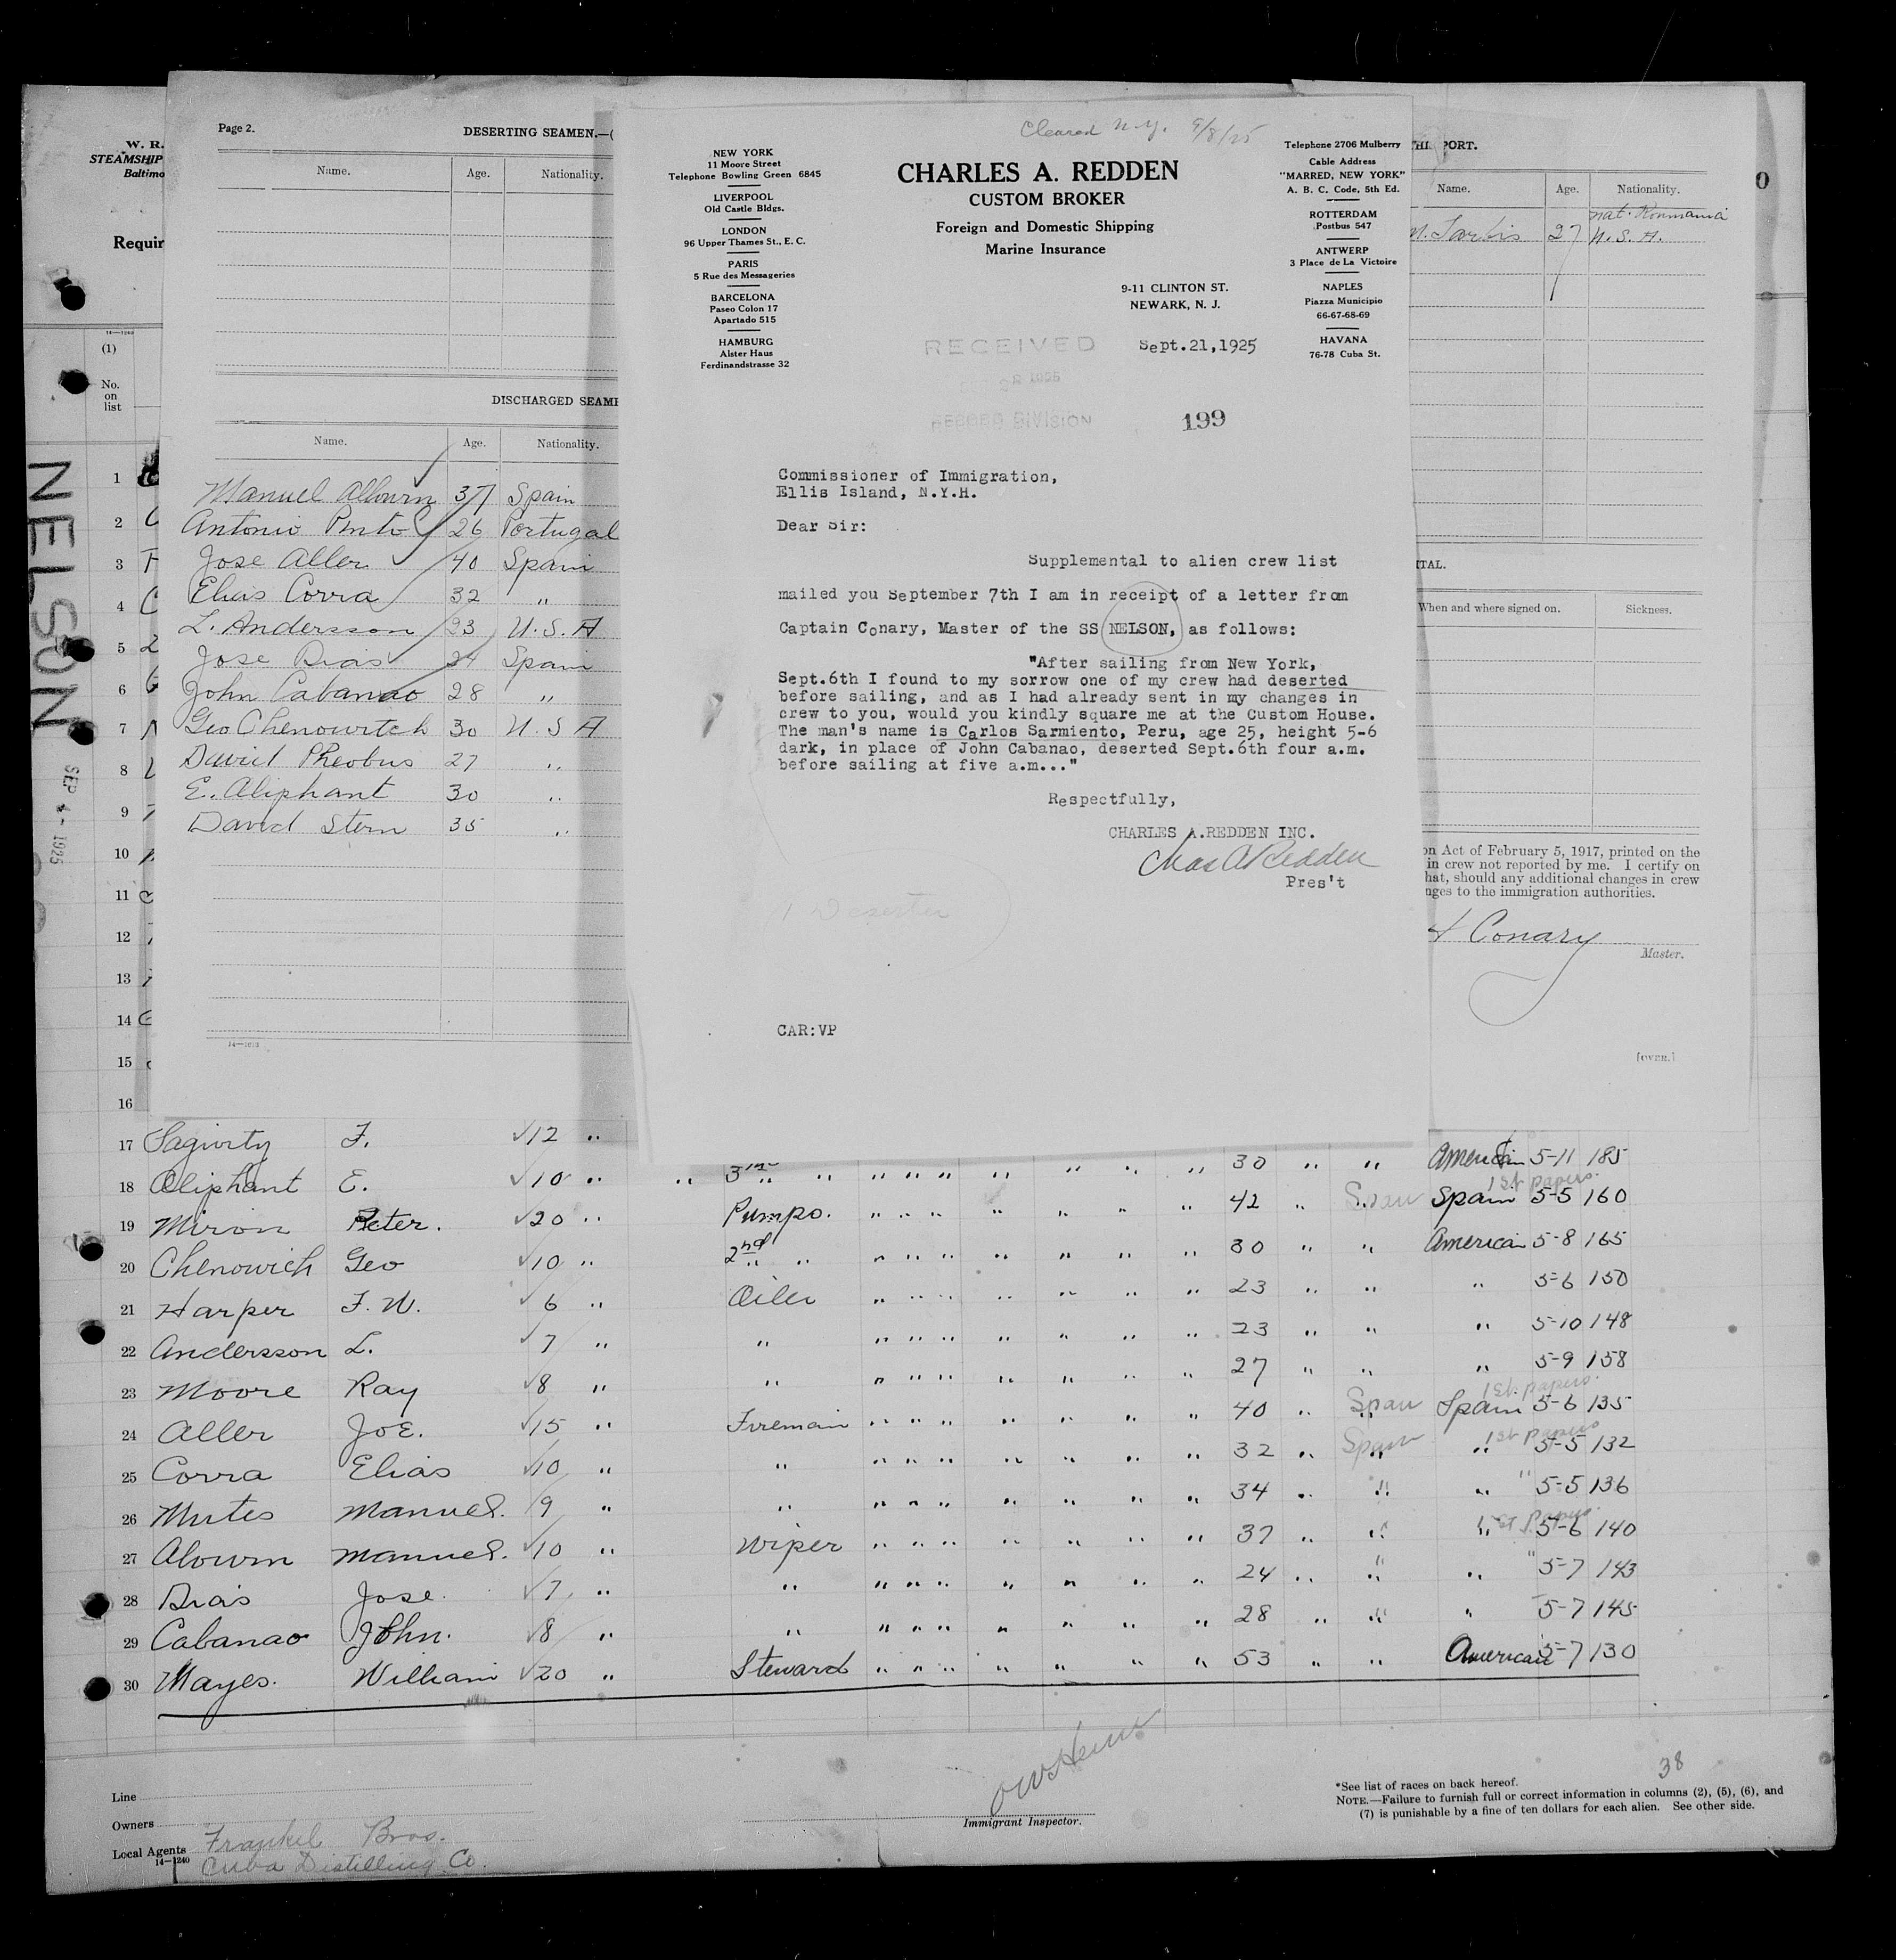 W. R.
STEAMSHIP
Baltimo
Requir
14—1240
(1)
No.
on
list
NELSON
SEP 4 - 1925
1
2
3
4
5
6
7
8
9
10
11
12
13
14
15
16
Page 2.
DESERTING SEAMEN.—(
Name. Age. Nationality.
DISCHARGED SEAME
Name. Age. Nationality.
Manuel Alowrn 37 Spain
Antonio Pinto 26 Portugal
Jose Aller 40 Spain
Elias Corra 32 "
L. Andersson 23 U.S.A
Jose Dias 24 Spain
John Cabanao 28 "
Geo Chenowitch 30 U.S A
David Pheobus 27 "
E. Aliphant 30 "
David Stern 35 "
Cleared N.Y. 9/8/25
NEW YORK
11 Moore Street
Telephone Bowling Green 6845
LIVERPOOL
Old Castle Bldgs.
LONDON
96 Upper Thames St., E. C.
PARIS
5 Rue des Messageries
BARCELONA
Paseo Colon 17
Apartado 515
HAMBURG
Alster Haus
Ferdinandstrasse 32
CHARLES A. REDDEN
CUSTOM BROKER
Foreign and Domestic Shipping
Marine Insurance
9-11 CLINTON ST.
NEWARK, N. J.
Telephone 2706 Mulberry
Cable Address
"MARRED, NEW YORK"
A. B. C. Code, 5th Ed.
ROTTERDAM
Postbus 547
ANTWERP
3 Place de La Victoire
NAPLES
Piazza Municipio
66-67-68-69
HAVANA
76-78 Cuba St.
RECEIVED
Sept.21,1925
1925
RECORD DIVISION
199
Commissioner of Immigration,
Ellis Island, N.Y.H.
Dear Sir:
Supplemental to alien crew list
mailed you September 7th I am in receipt of a letter from
Captain Conary, Master of the SS NELSON, as follows:
"After sailing from New York,
Sept.6th I found to my sorrow one of my crew had deserted
before sailing, and as I had already sent in my changes in
crew to you, would you kindly square me at the Custom House.
The man's name is Carlos Sarmiento, Peru, age 25, height 5-6
dark, in place of John Cabanao, deserted Sept.6th four a.m.
before sailing at five a.m..."
Respectfully,
CHARLES A.REDDEN INC.
Chas A Redden
Pres't
1 Deserter
CAR:VP
THI PORT.
Name. Age. Nationality.
nat. Roumania
27 U.S.A.
ITAL.
When and where signed on. Sickness.
on Act of February 5, 1917, printed on the
in crew not reported by me. I certify on
hat, should any additional changes in crew
nges to the immigration authorities.
Conary
Master.
[OVER.]
17 F. 12 "
18 Aliphant E. 10 " " 3rd " " " " " " " " 30 " " American 5-11 185
19 Miron Peter. 20 " Pumpo. " " " " " " " 42 " Spain " 1st papers Spain 5-5 160
20 Chenowich Geo 10 " 2nd " " " " " " " " " 30 " " American 5-8 165
21 Harper F. W. 6 " Oiler " " " " " " " 23 " " " 5-6 150
22 Andersson L. 7 " " " " " " " " " 23 " " " 5-10 148
23 Moore Ray 8 " " " " " " " " " 27 " " " 5-9 158
24 Aller Joe. 15 " Fireman " " " " " " " 40 " Spain " 1st papers. Spain 5-6 135
25 Corra Elias 10 " " " " " " " " " 32 " Spain " 1st papers " 5-5 132
26 Mutes Manuel. 9 " " " " " " " " " 34 " " " 5-5 136
27 Alowrn Manuel. 10 " Wiper " " " " " " " 37 " " 1st Papers " 5-6 140
28 Dias Jose. 7 " " " " " " " " " 24 " " " 5-7 143
29 Cabanao John. 8 " " " " " " " " " 28 " " " 5-7 145
30 Mayes. William 20 " Steward " " " " " " " 53 " " American 5-7 130
38
Line
Owners
Local Agents Frankel Bros.
14—1240 Cuba Distilling Co.
Immigrant Inspector.
*See list of races on back hereof.
NOTE.—Failure to furnish full or correct information in columns (2), (5), (6), and
(7) is punishable by a fine of ten dollars for each alien. See other side.